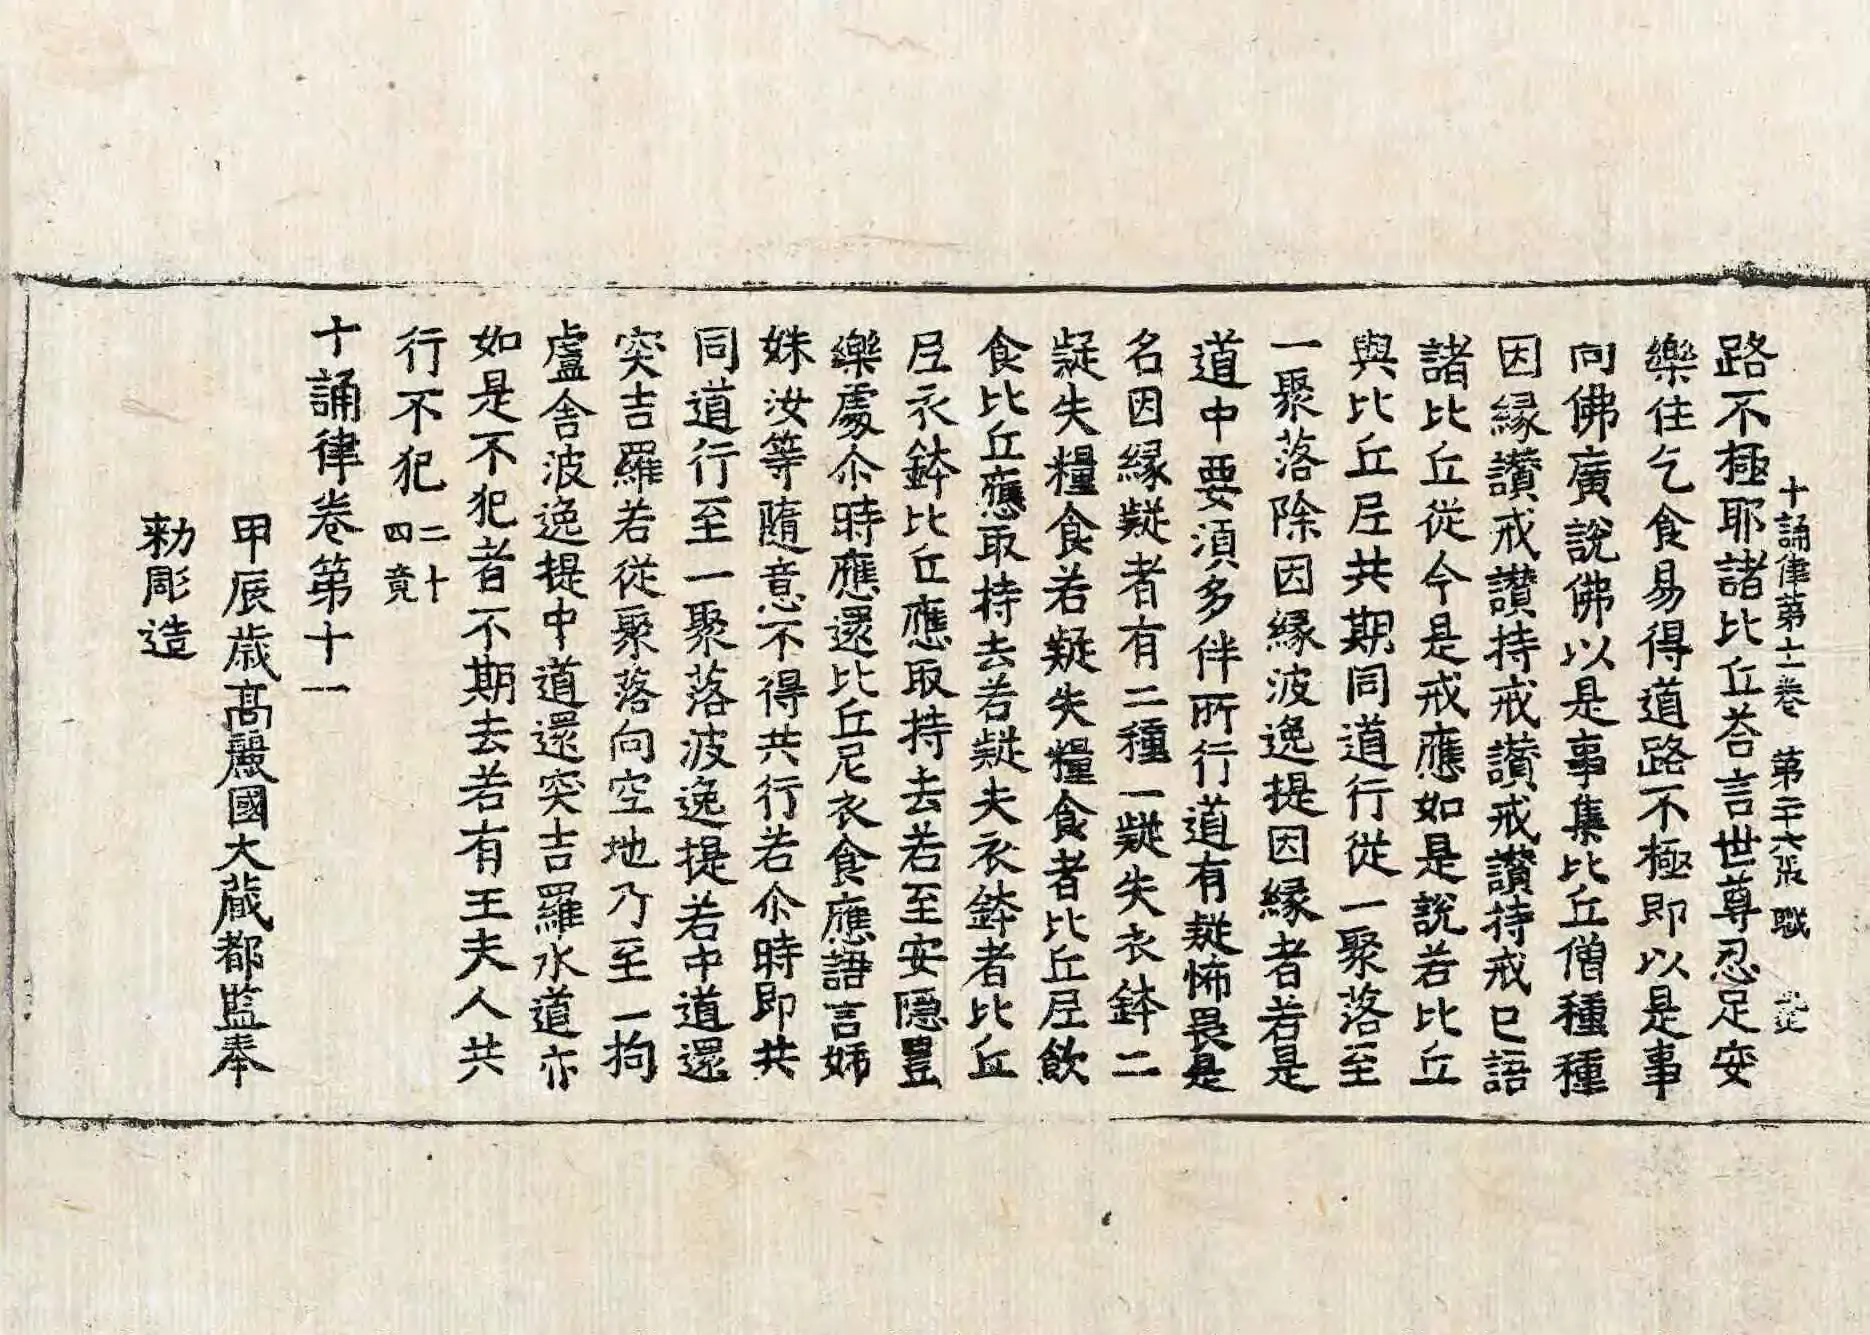 十誦律第十一卷 第二十六張 職
路不極耶諸比丘荅言世尊忍足安
樂住乞食易得道路不極即以是事
向佛廣說佛以是事集比丘僧種種
因緣讃戒讃持戒讃戒讃持戒已語
諸比丘從今是戒應如是說若比丘
與比丘尼共期同道行從一聚落至
一聚落除因緣波逸提因緣者若是
道中要須多伴所行道有疑怖畏是
名因緣疑者有二種一疑失衣鉢二
疑失糧食若疑失糧食者比丘尼飲
食比丘應取持去若疑失衣鉢者比丘
尼衣鉢比丘應取持去若至安隱豊
樂處尒時應還比丘尼衣食應語言姊
妹汝等隨意不得共行若尒時即共
同道行至一聚落波逸提若中道還
突吉羅若從聚落向空地乃至一拘
盧舍波逸提中道還突吉羅水道亦
如是不犯者不期去若有王夫人共
行不犯 二十四竟
十誦律卷第十一
甲辰歲高麗國大藏都監奉
勑彫造